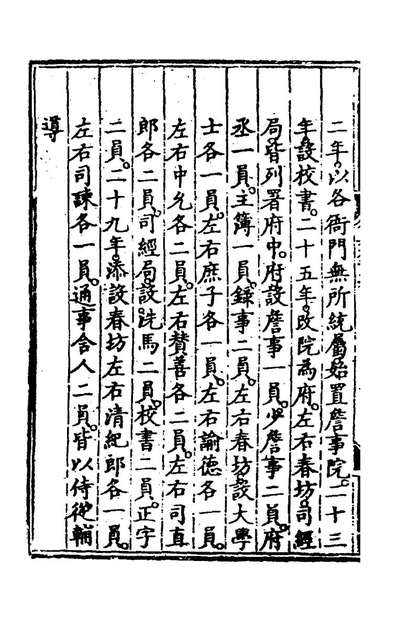 二年。以各衙門無所統屬始置詹事院。二十三
年設校書。二十五年。改院為府。左右春坊。司經
局。皆列署府中。府設詹事一員。少詹事二員。府
丞一員。主簿一員。錄事二員。左右春坊。設大學
士各一員。左右庶子各一員。左右諭德各一員。
左右中允各二員。左右賛善各二員。左右司直
郎各二員。司經局。設洗馬二員。校書二員。正字
二員。二十九年。添設春坊左右清紀郎各一員。
左右司諫各一員。通事舍人二員。皆以侍從輔
導